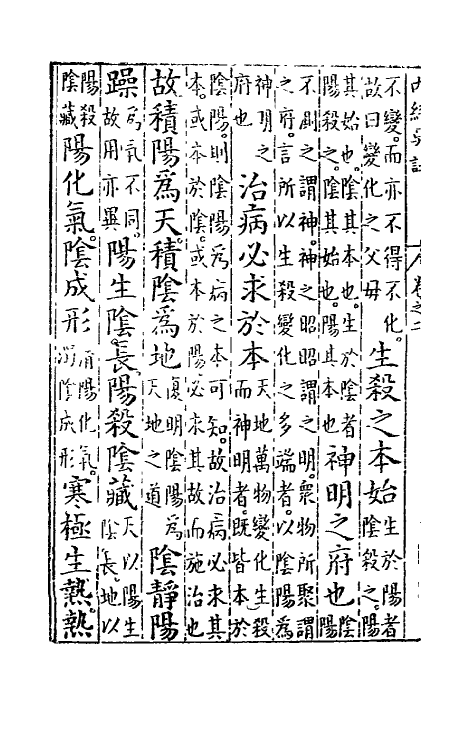 內經吳註 卷之二
不變。而亦不得不化。故曰變化之父母 生殺之本始 生於陽者陰殺之。陽
其始也。陰其本也。生於陰者陽殺之。陰其始也。陽其本也 神明之府也 陰陽
不測之謂神。神之昭昭謂之明。衆物所聚謂之府。言所以生殺變化之多端者。以陰陽為
神明之府也 治病必求於本 天地萬物變化生殺而神明者。既皆本於
陰陽。則陰陽為病之本可知。故治病必求其本。或本於陰。或本於陽。必求其故而施治也
故積陽為天。積陰為地 復明陰陽為天地之道 陰靜陽
躁 為氣不同。故用亦異 陽生陰長。陽殺陰藏 天以陽生陰長。地以
陽殺陰藏 陽化氣。陰成形 清陽化氣。濁陰成形 寒極生熱。熱